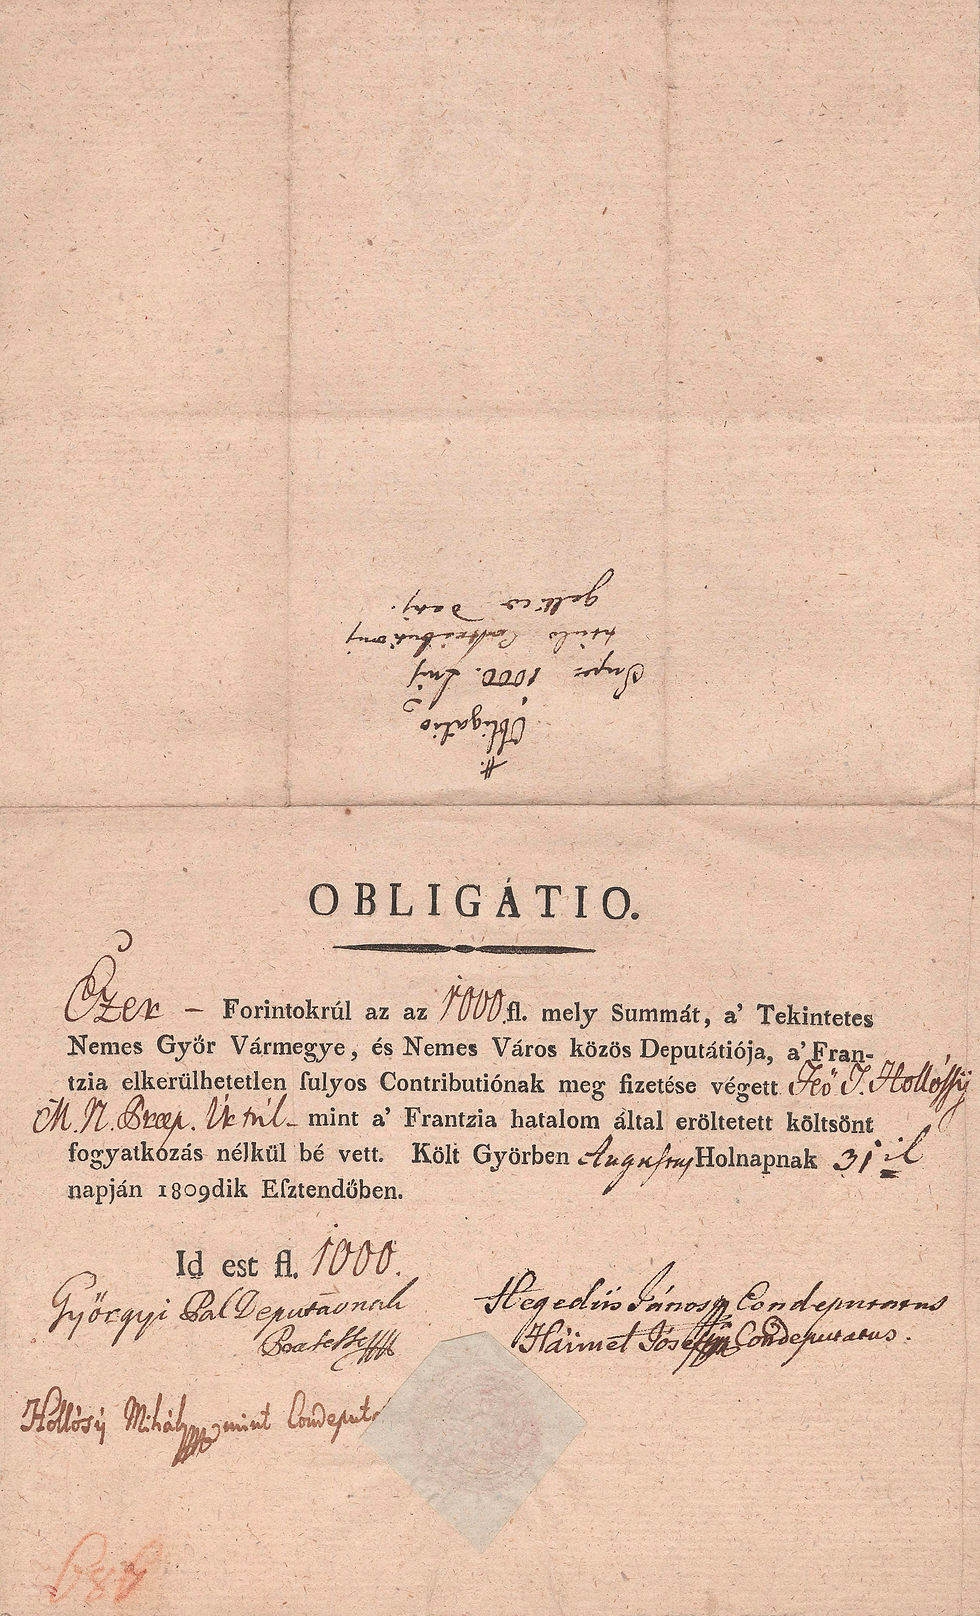 #.
Obligatio
Super 1000.
titulo Contributionis
gallicae
OBLIGÁTIO.
Ezer – Forintokrúl az az 1000.fl. mely Summát, a' Tekintetes
Nemes Győr Vármegye, és Nemes Város közös Deputátiója, a' Fran-
tzia elkerülhetetlen ſulyos Contributiónak meg fizetése végett Fő T. Hollósÿ
M. N. Præp. Úrtúl – mint a' Frantzia hatalom által eröltetett költsönt
fogyatkozás nélkül bé vett. Költ Györben Augustus Holnapnak 31 il
napján 1809dik Eſztendőben.
Id est fl. 1000.
Györgyi Pál Deputátiónak
Hegedüs János Condeputatus
Háimel Jósef Condeputatus.
Hollósÿ Mihály mint Condeputa